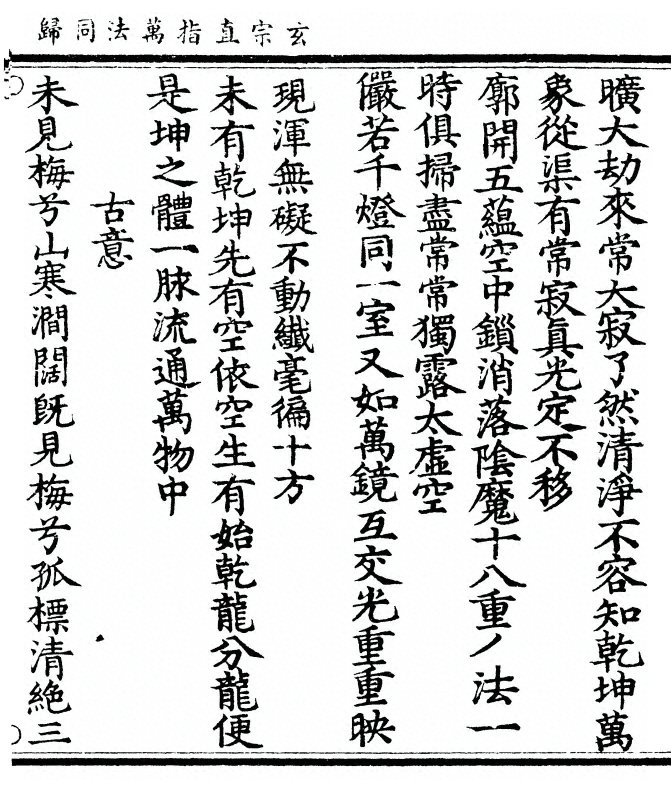 玄宗直指萬法同歸
曠大劫來常大寂了然清淨不容知乾坤萬
象從渠有常寂真光定不移
廓開五蘊空中鎖消落陰魔十八重ノ法一
時俱掃盡常常獨露太虛空
儼若千燈同一室又如萬鏡互交光重重映
現渾無礙不動纖毫徧十方
未有乾坤先有空依空生有始乾龍分龍便
是坤之體一脉流通萬物中
古意
未見梅兮山寒澗闊既見梅兮孤標清絕三